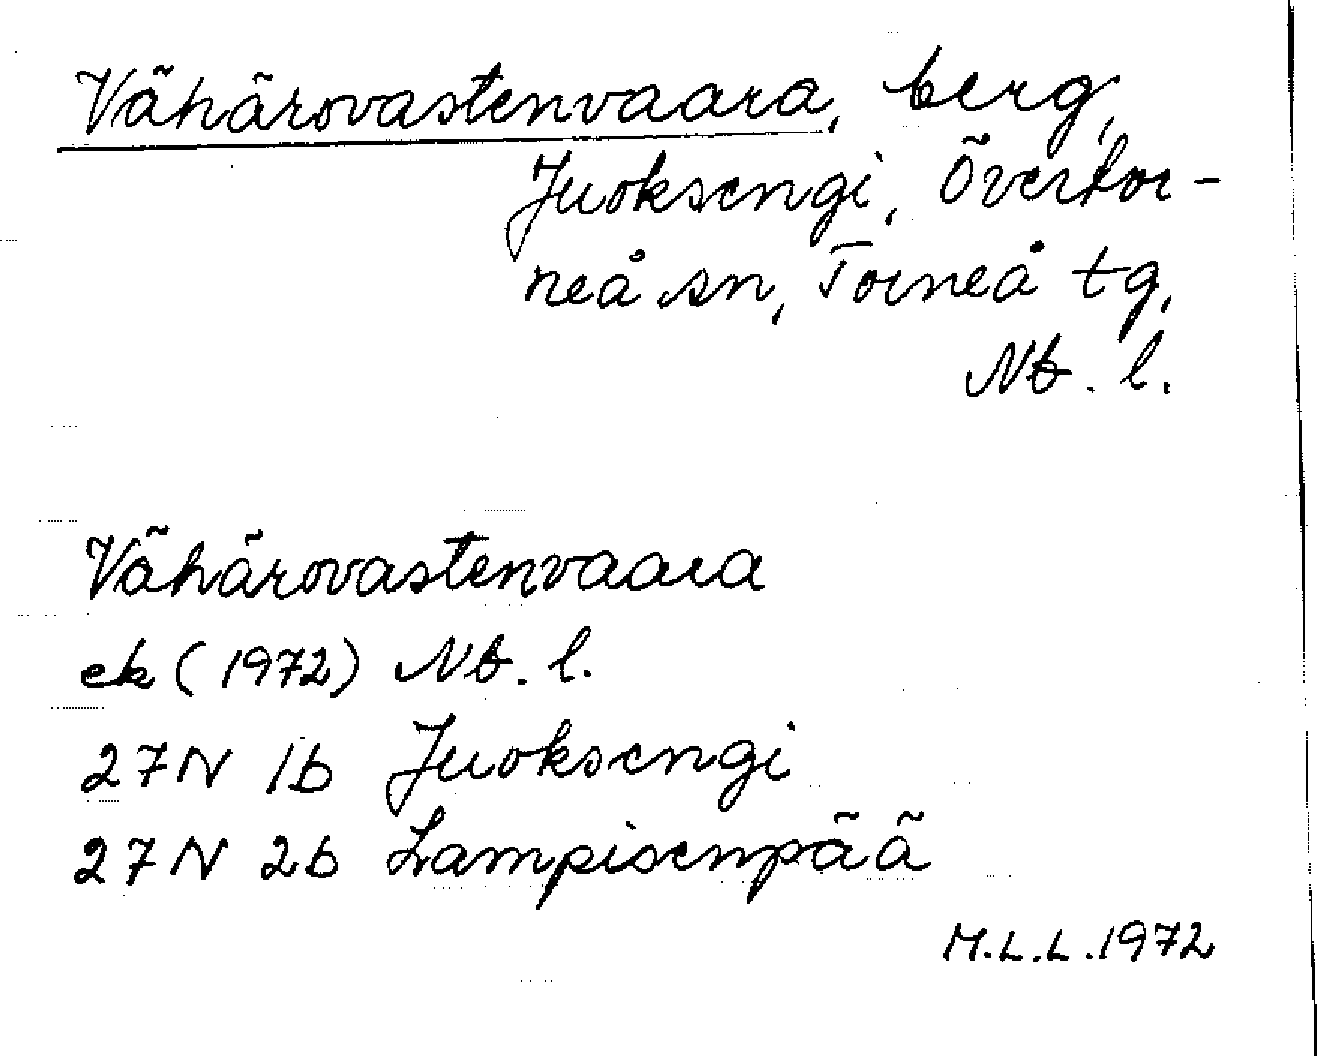 Vähärovastenvaara, berg,
Juoksengi, Övertor-
neå sn, Torneå tg,
Nb. l.
Vähärovastenvaara
ek (1972) Nb. l.
27N 1b Juoksengi
27N 2b Lampisenpää
M.L.L. 1972